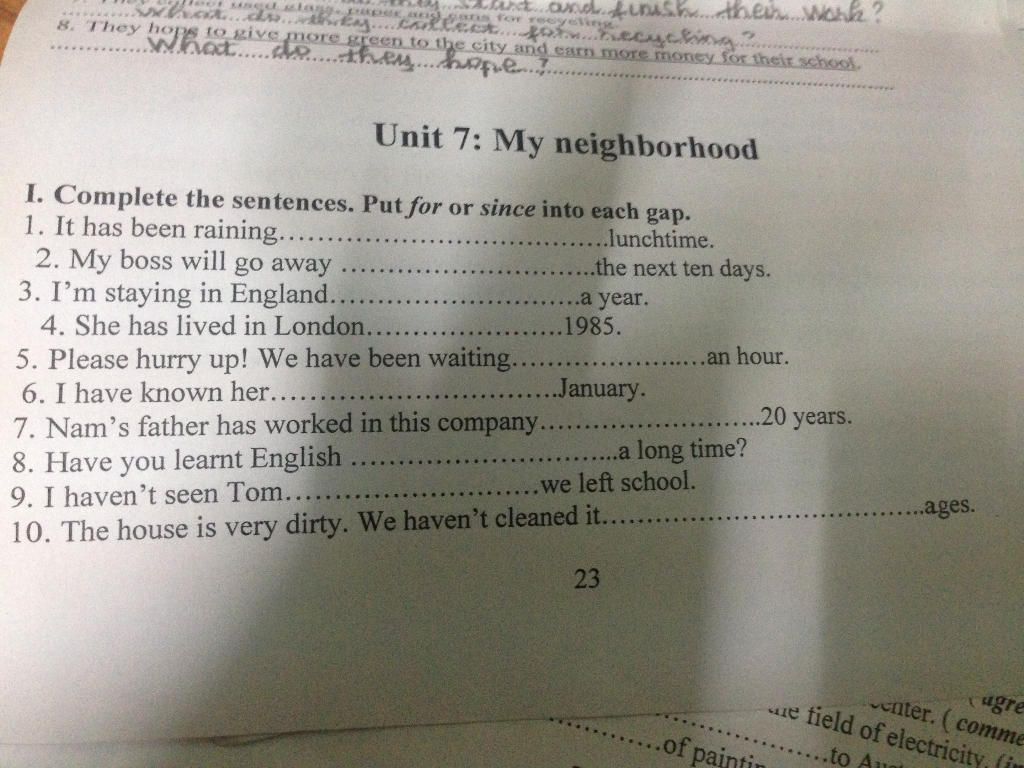 start and finish their work?
collect used glass, paper and cans for recycling
What do they collect for recycling?
8. They hope to give more green to the city and earn more money for their school.
What do they hope?
Unit 7: My neighborhood
I. Complete the sentences. Put for or since into each gap.
1. It has been raining..................................lunchtime.
2. My boss will go away ..........................the next ten days.
3. I'm staying in England..........................a year.
4. She has lived in London.....................1985.
5. Please hurry up! We have been waiting.......................an hour.
6. I have known her..............................January.
7. Nam's father has worked in this company.......................20 years.
8. Have you learnt English ...........................a long time?
9. I haven't seen Tom..........................we left school.
10. The house is very dirty. We haven't cleaned it.................................ages.
23
(agre
center. (comme
the field of electricity. (in
..........of paintin
.............to Aust